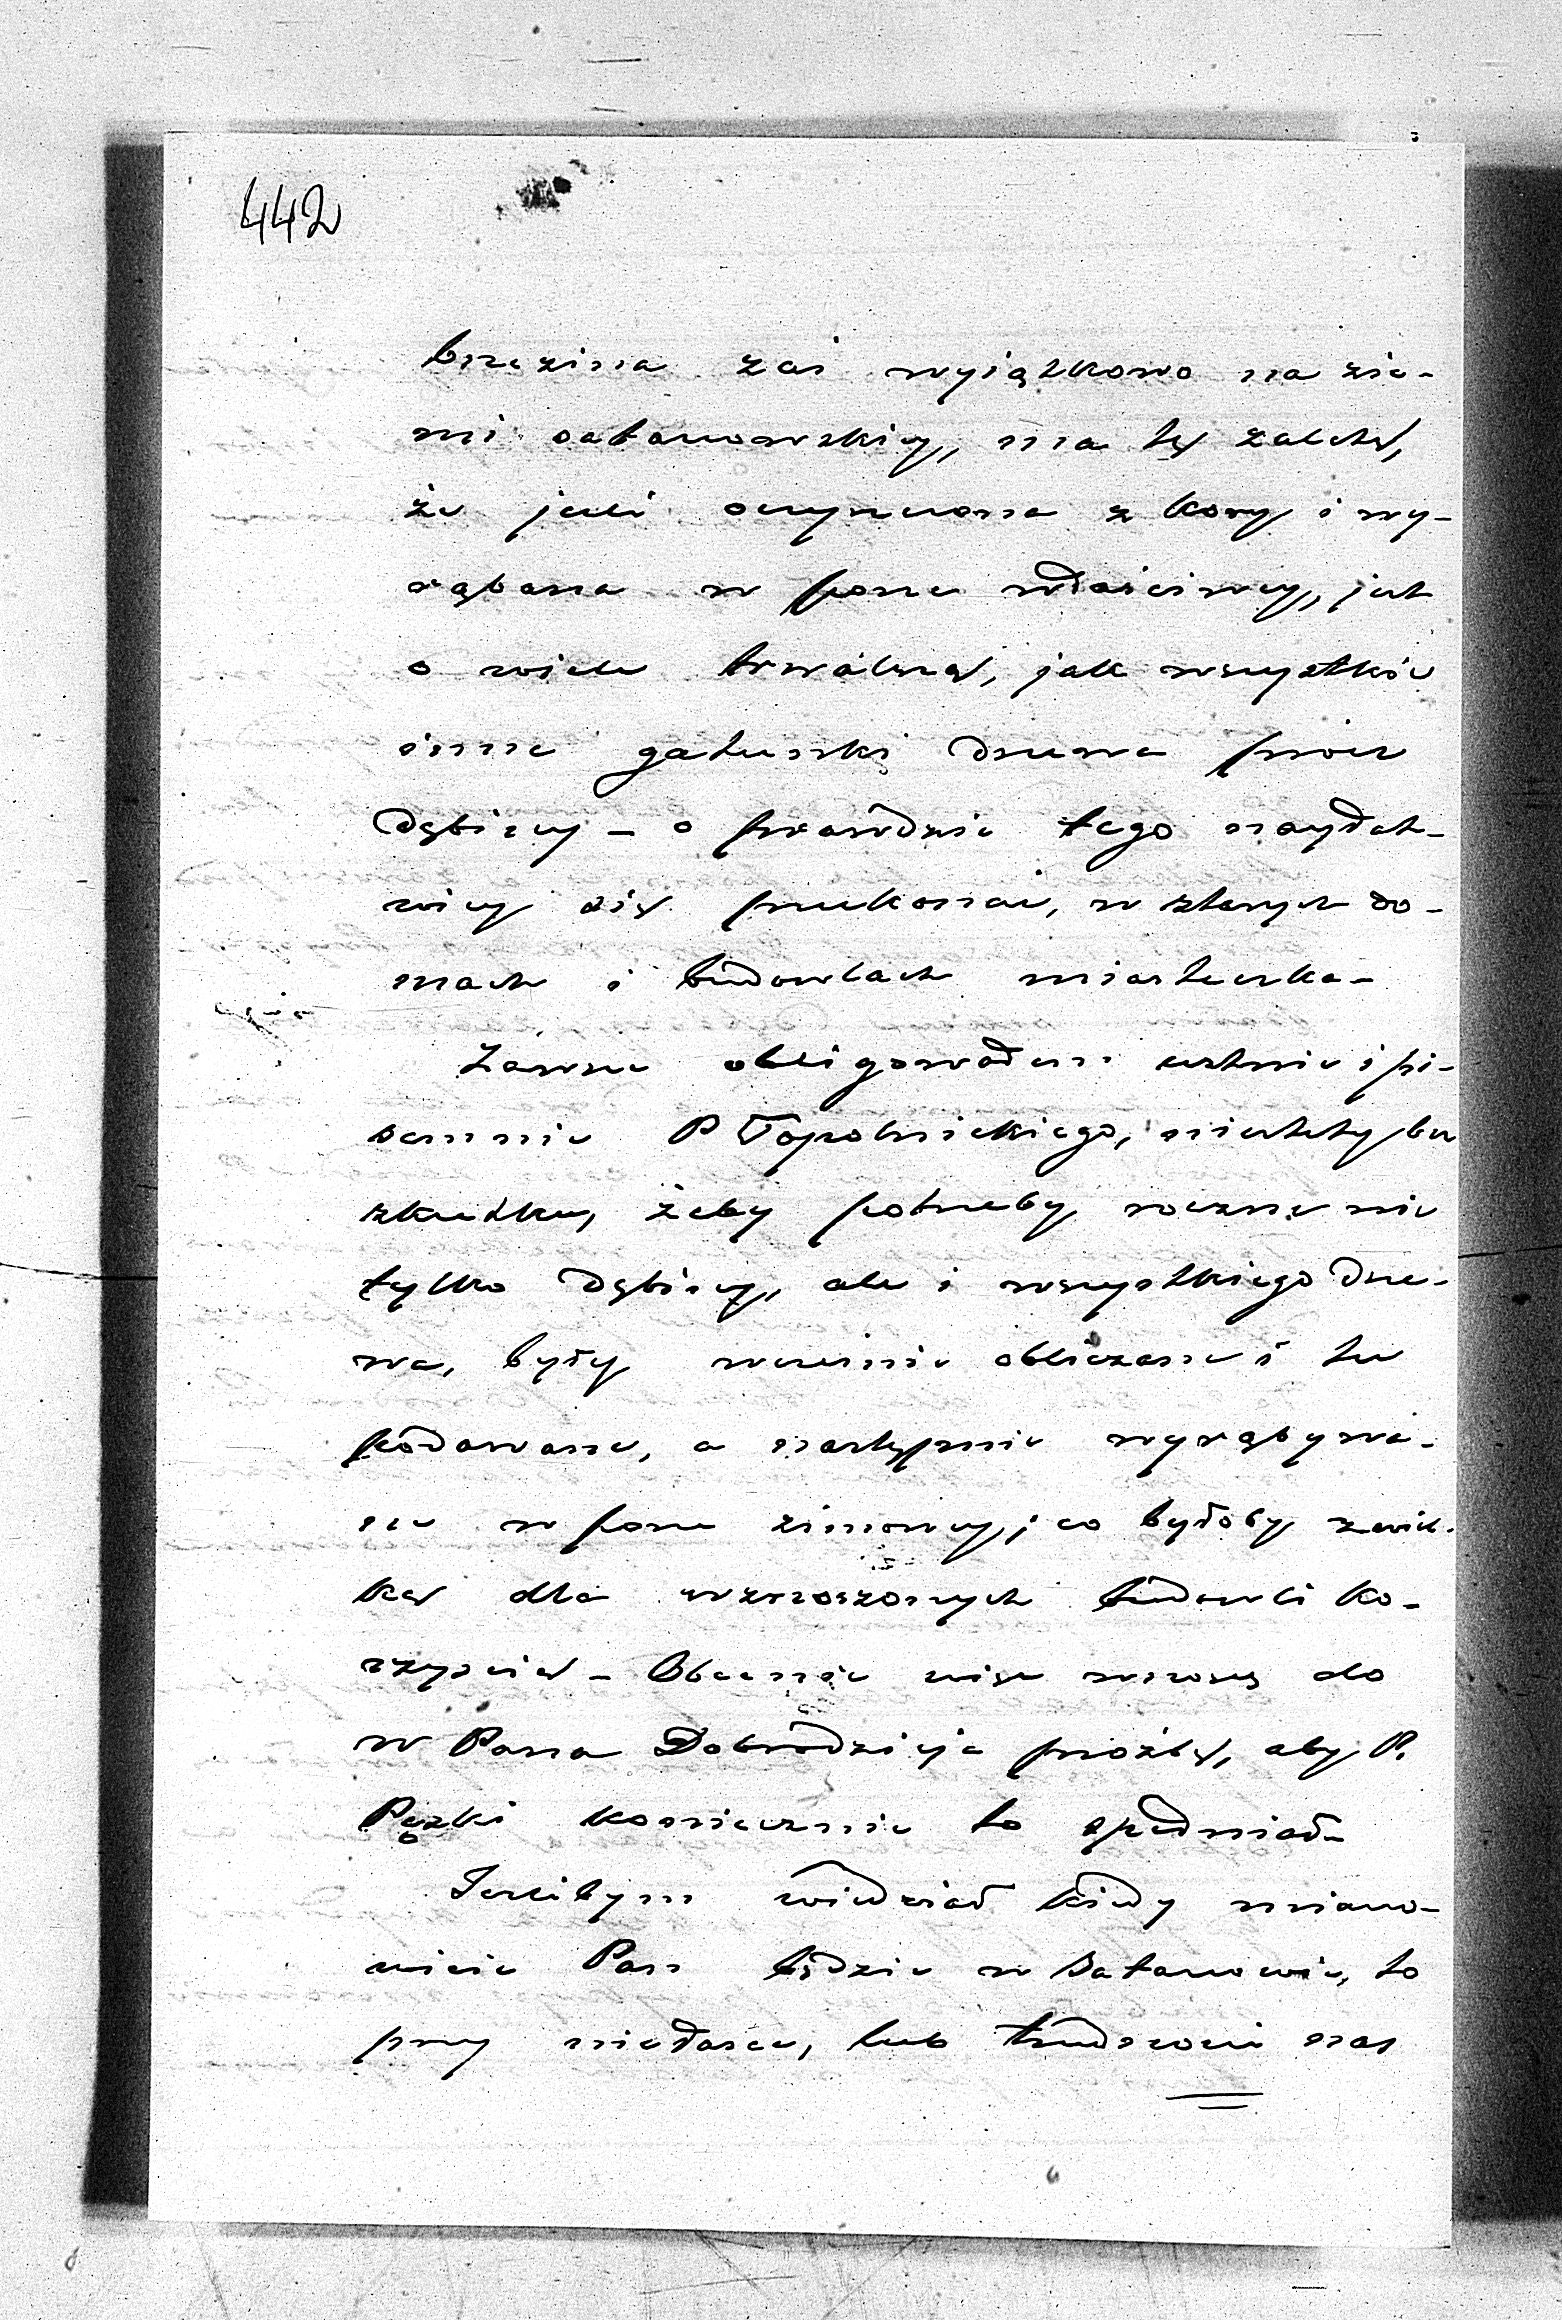 442
brzezina zaś wyiątkowo na zie-
mi satanowskiey, ma tę zaletę,
że jeśli oczyszczona z kory i wy-
rąbana w porze właściwey, jest
o wiele trwalszą, jak wszystkie
inne gatunki drzewa prócz
dębiny - o prawdzie tego nayłat-
wiey się przekonać, w starych do-
mach i budowlach miasteczka -
Zawsze obligowałem ustnie i pi-
semnie P Topolnickiego, niestety bez
skutku, żeby potrzeby roczne nie
tylko dębiny, ale i wszystkiego drze-
wa, były wcześnie obliczane i tu
podawane, a następnie wyrąbywa-
ne w porze zimowey, co byłoby z wiel-
ką dla wznoszonych budowli ko-
rzyścią - Obecnie więc wnoszę do
W Pana Dobrodzieja prożbę, aby P.
Pęski koniecznie to spełniał -
Jeślibym wiedział kiedy miano-
wicie Pan będzie w Satanowie, to
przy niedasce, lub trudności nas